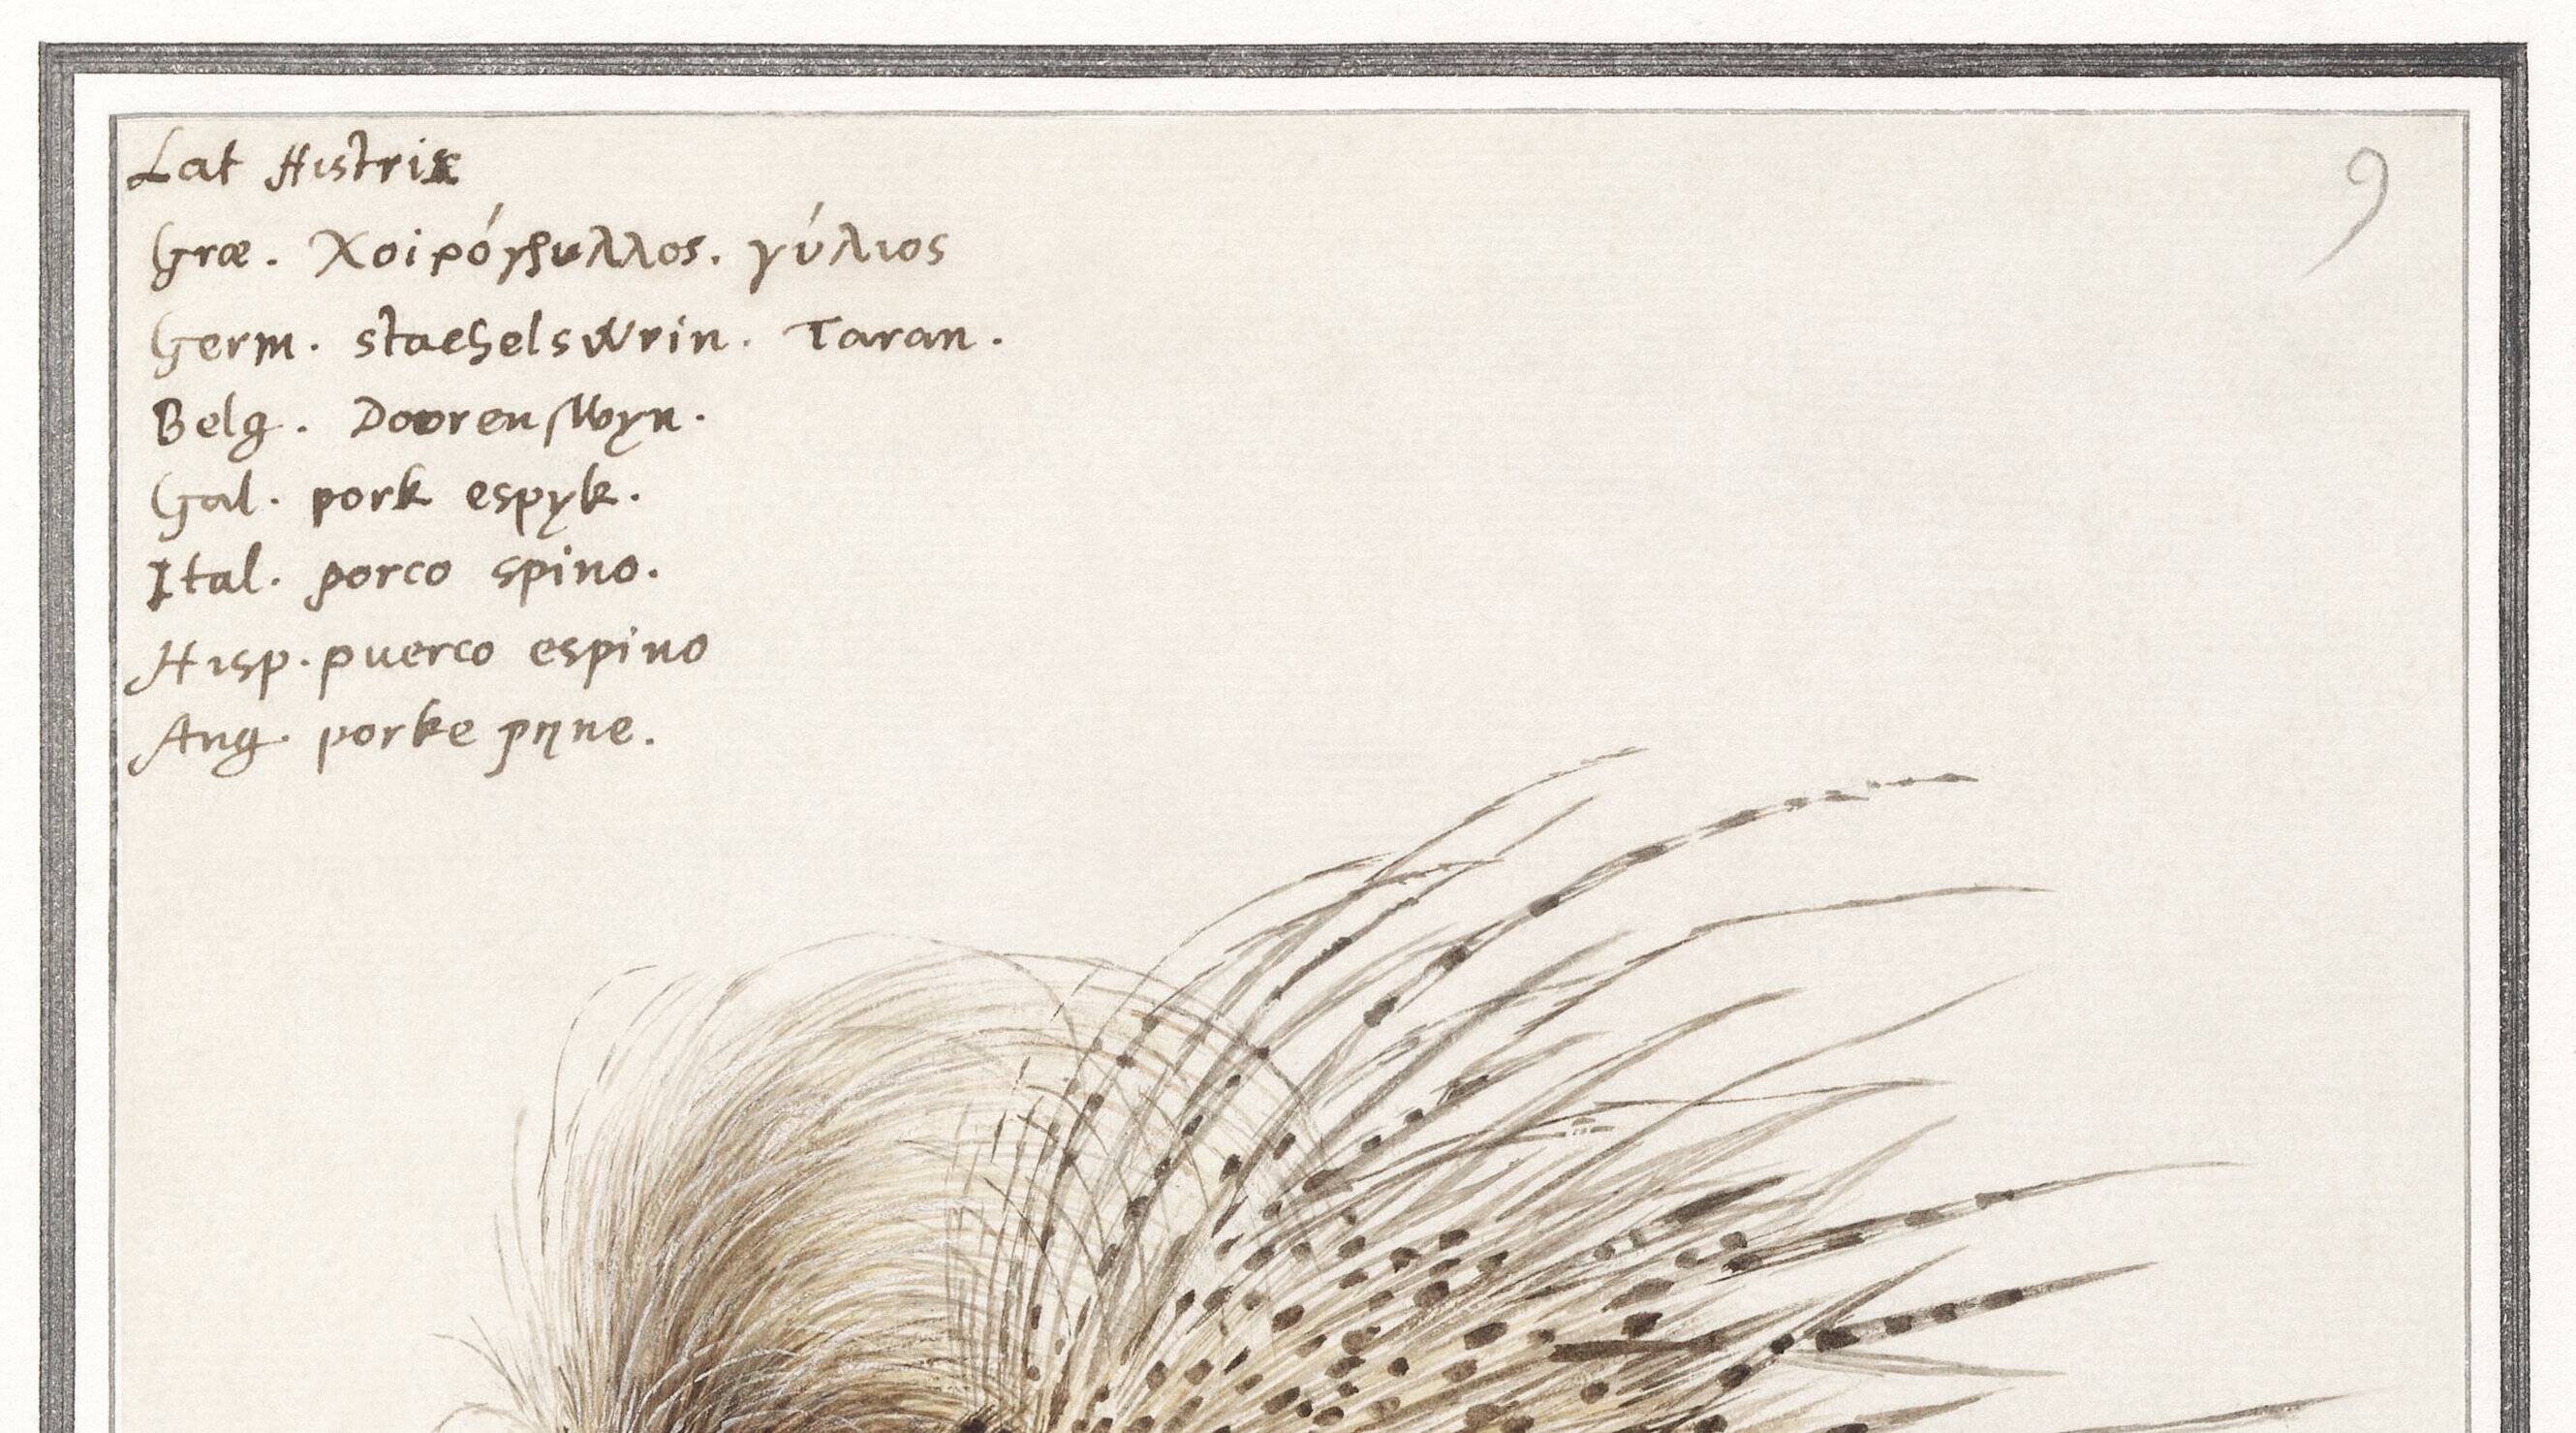 Lat Histrix
9
Græ. Χοιρόγρυλλος. γύλιος
Germ. stachelswrin. Taran.
Belg. Doorenswyn.
Gal. pork espyk.
Ital. porco spino.
Hisp. puerco espino
Ang. porke pyne.